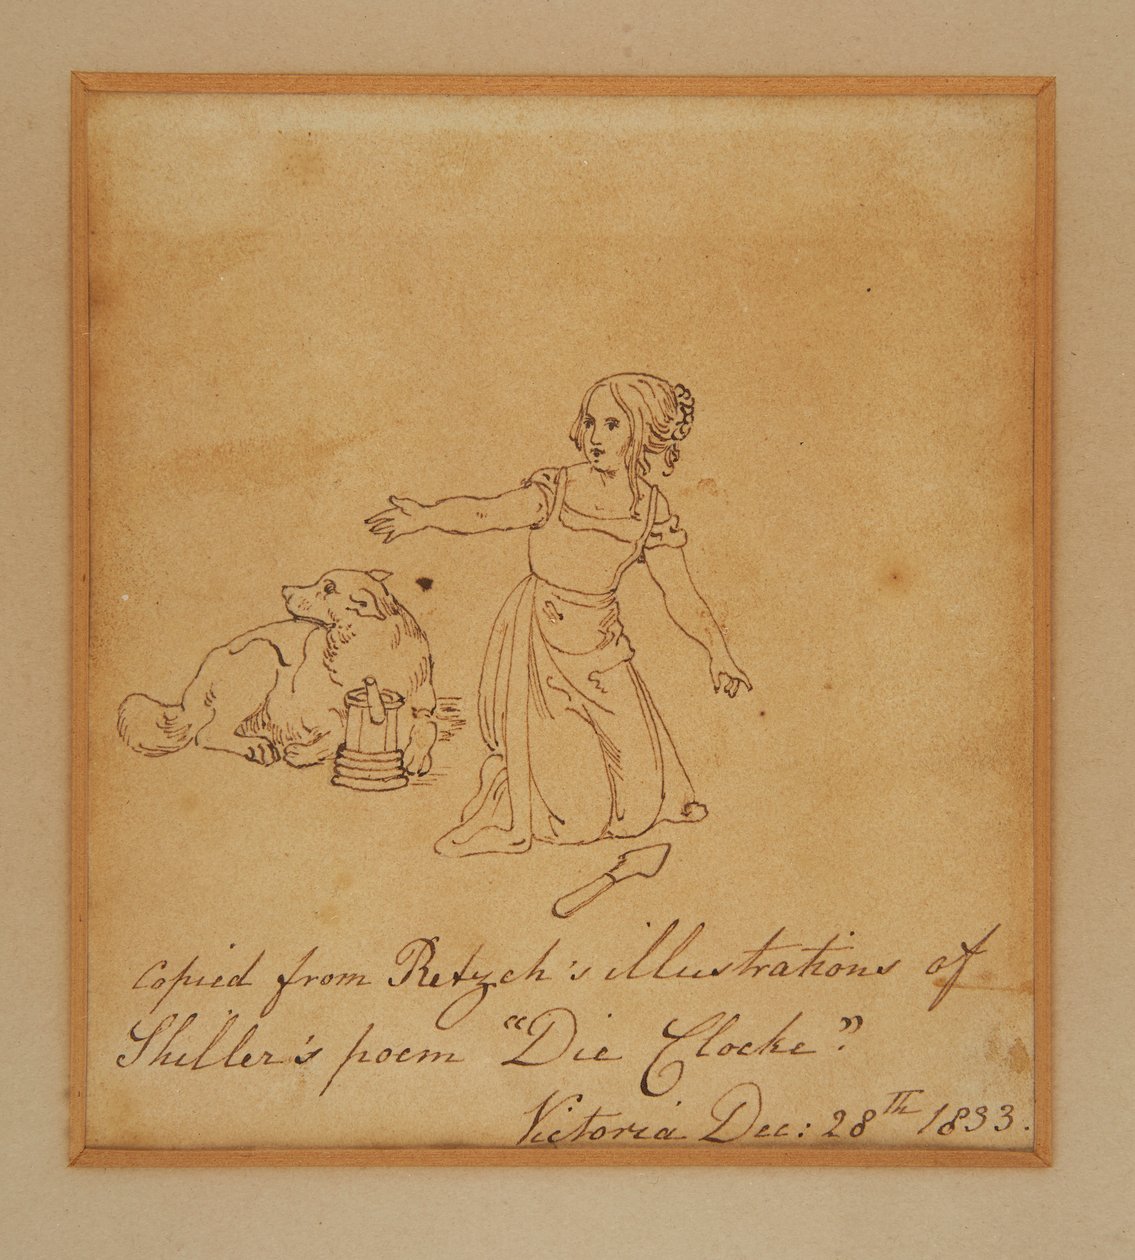 copied from Retzch's illustrations of
Shiller's poem "Die Clocke"
Victoria Dec: 28th 1833.